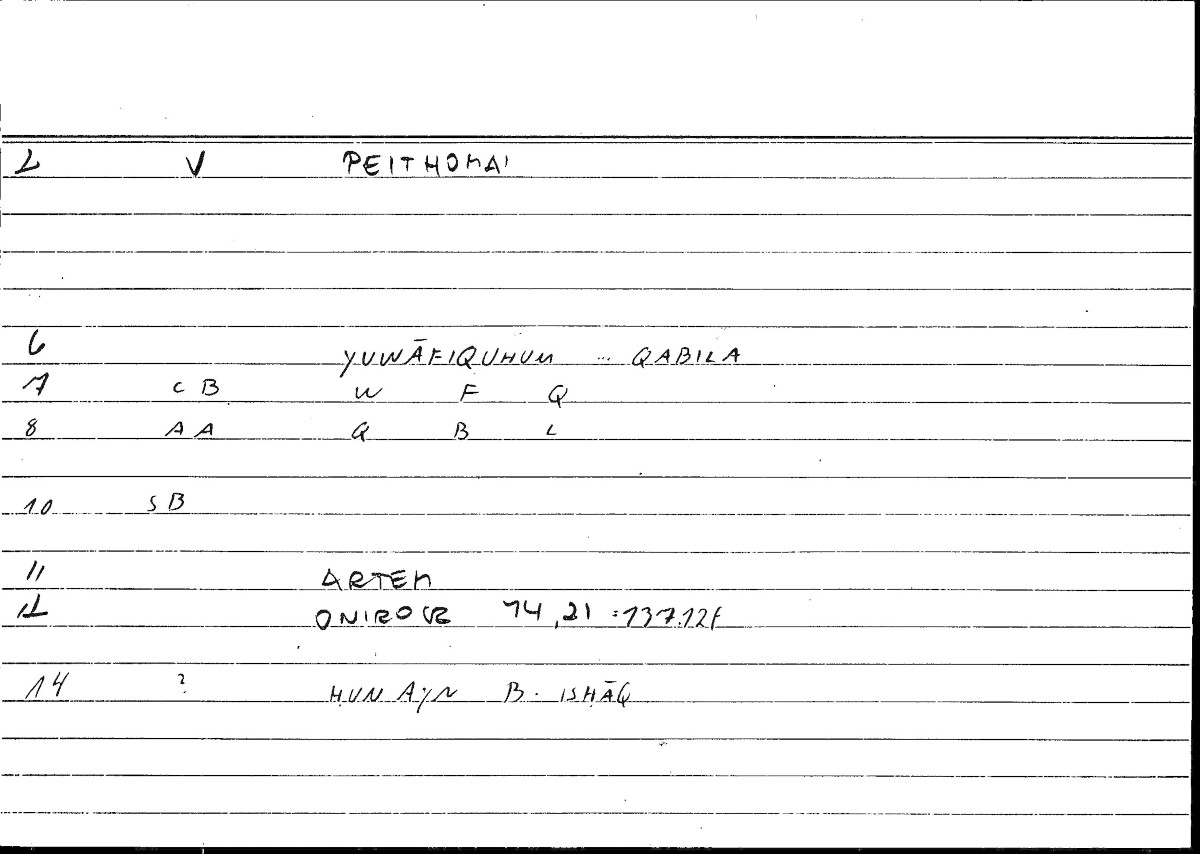 2 V PEITHOMAI
6 YUWĀFIQUHUM ... QABILA
7 C B W F Q
8 A A Q B L
10 S B
11 ARTEM
12 ONIROCR 14,21 :137.12f
14 ? ḤUNAYN B. ISḤĀQ